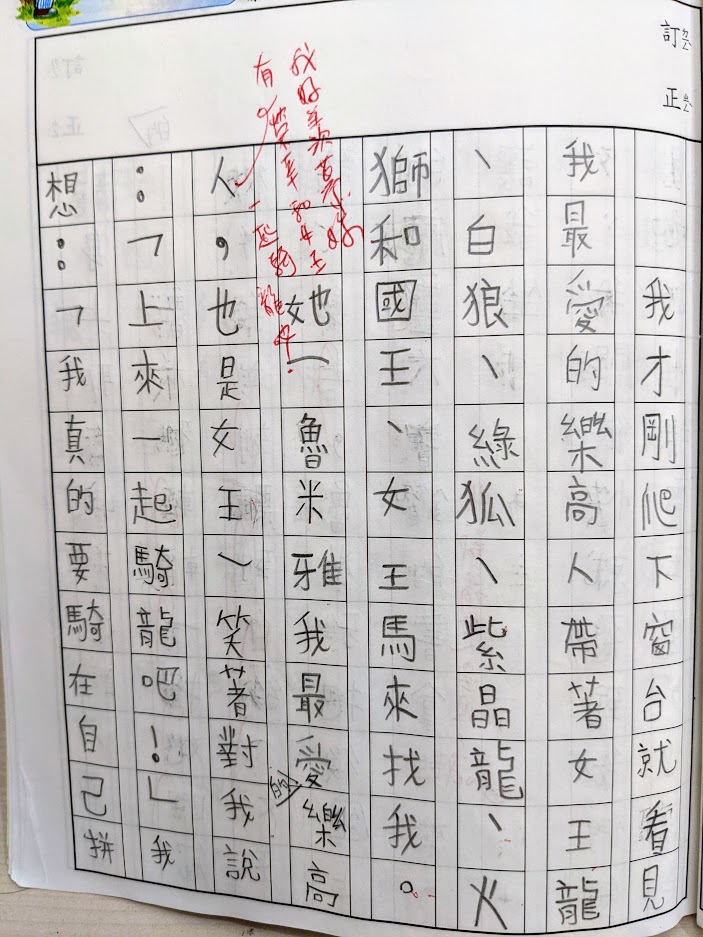 訂ㄉㄧㄥˋ
正ㄓㄥˋ
我才剛爬下窗台就看見
我最愛的樂高人帶著女王龍
、白狼、綠狐、紫晶龍、火
獅和國王、女王馬來找我。
她—魯米雅我最愛的樂高
人,也是女王、笑著對我說
:「上來一起騎龍吧!」我
想:「我真的要騎在自己拼
我好羨慕妳
有榮幸和女王
一起騎龍也!